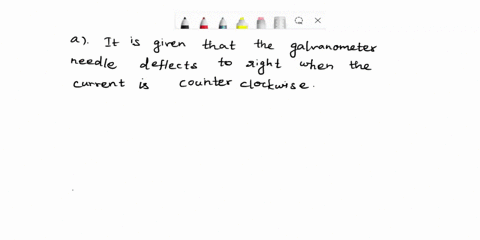 a). It is given that the galvanometer
needle deflects to right when the
current is counter clockwise.